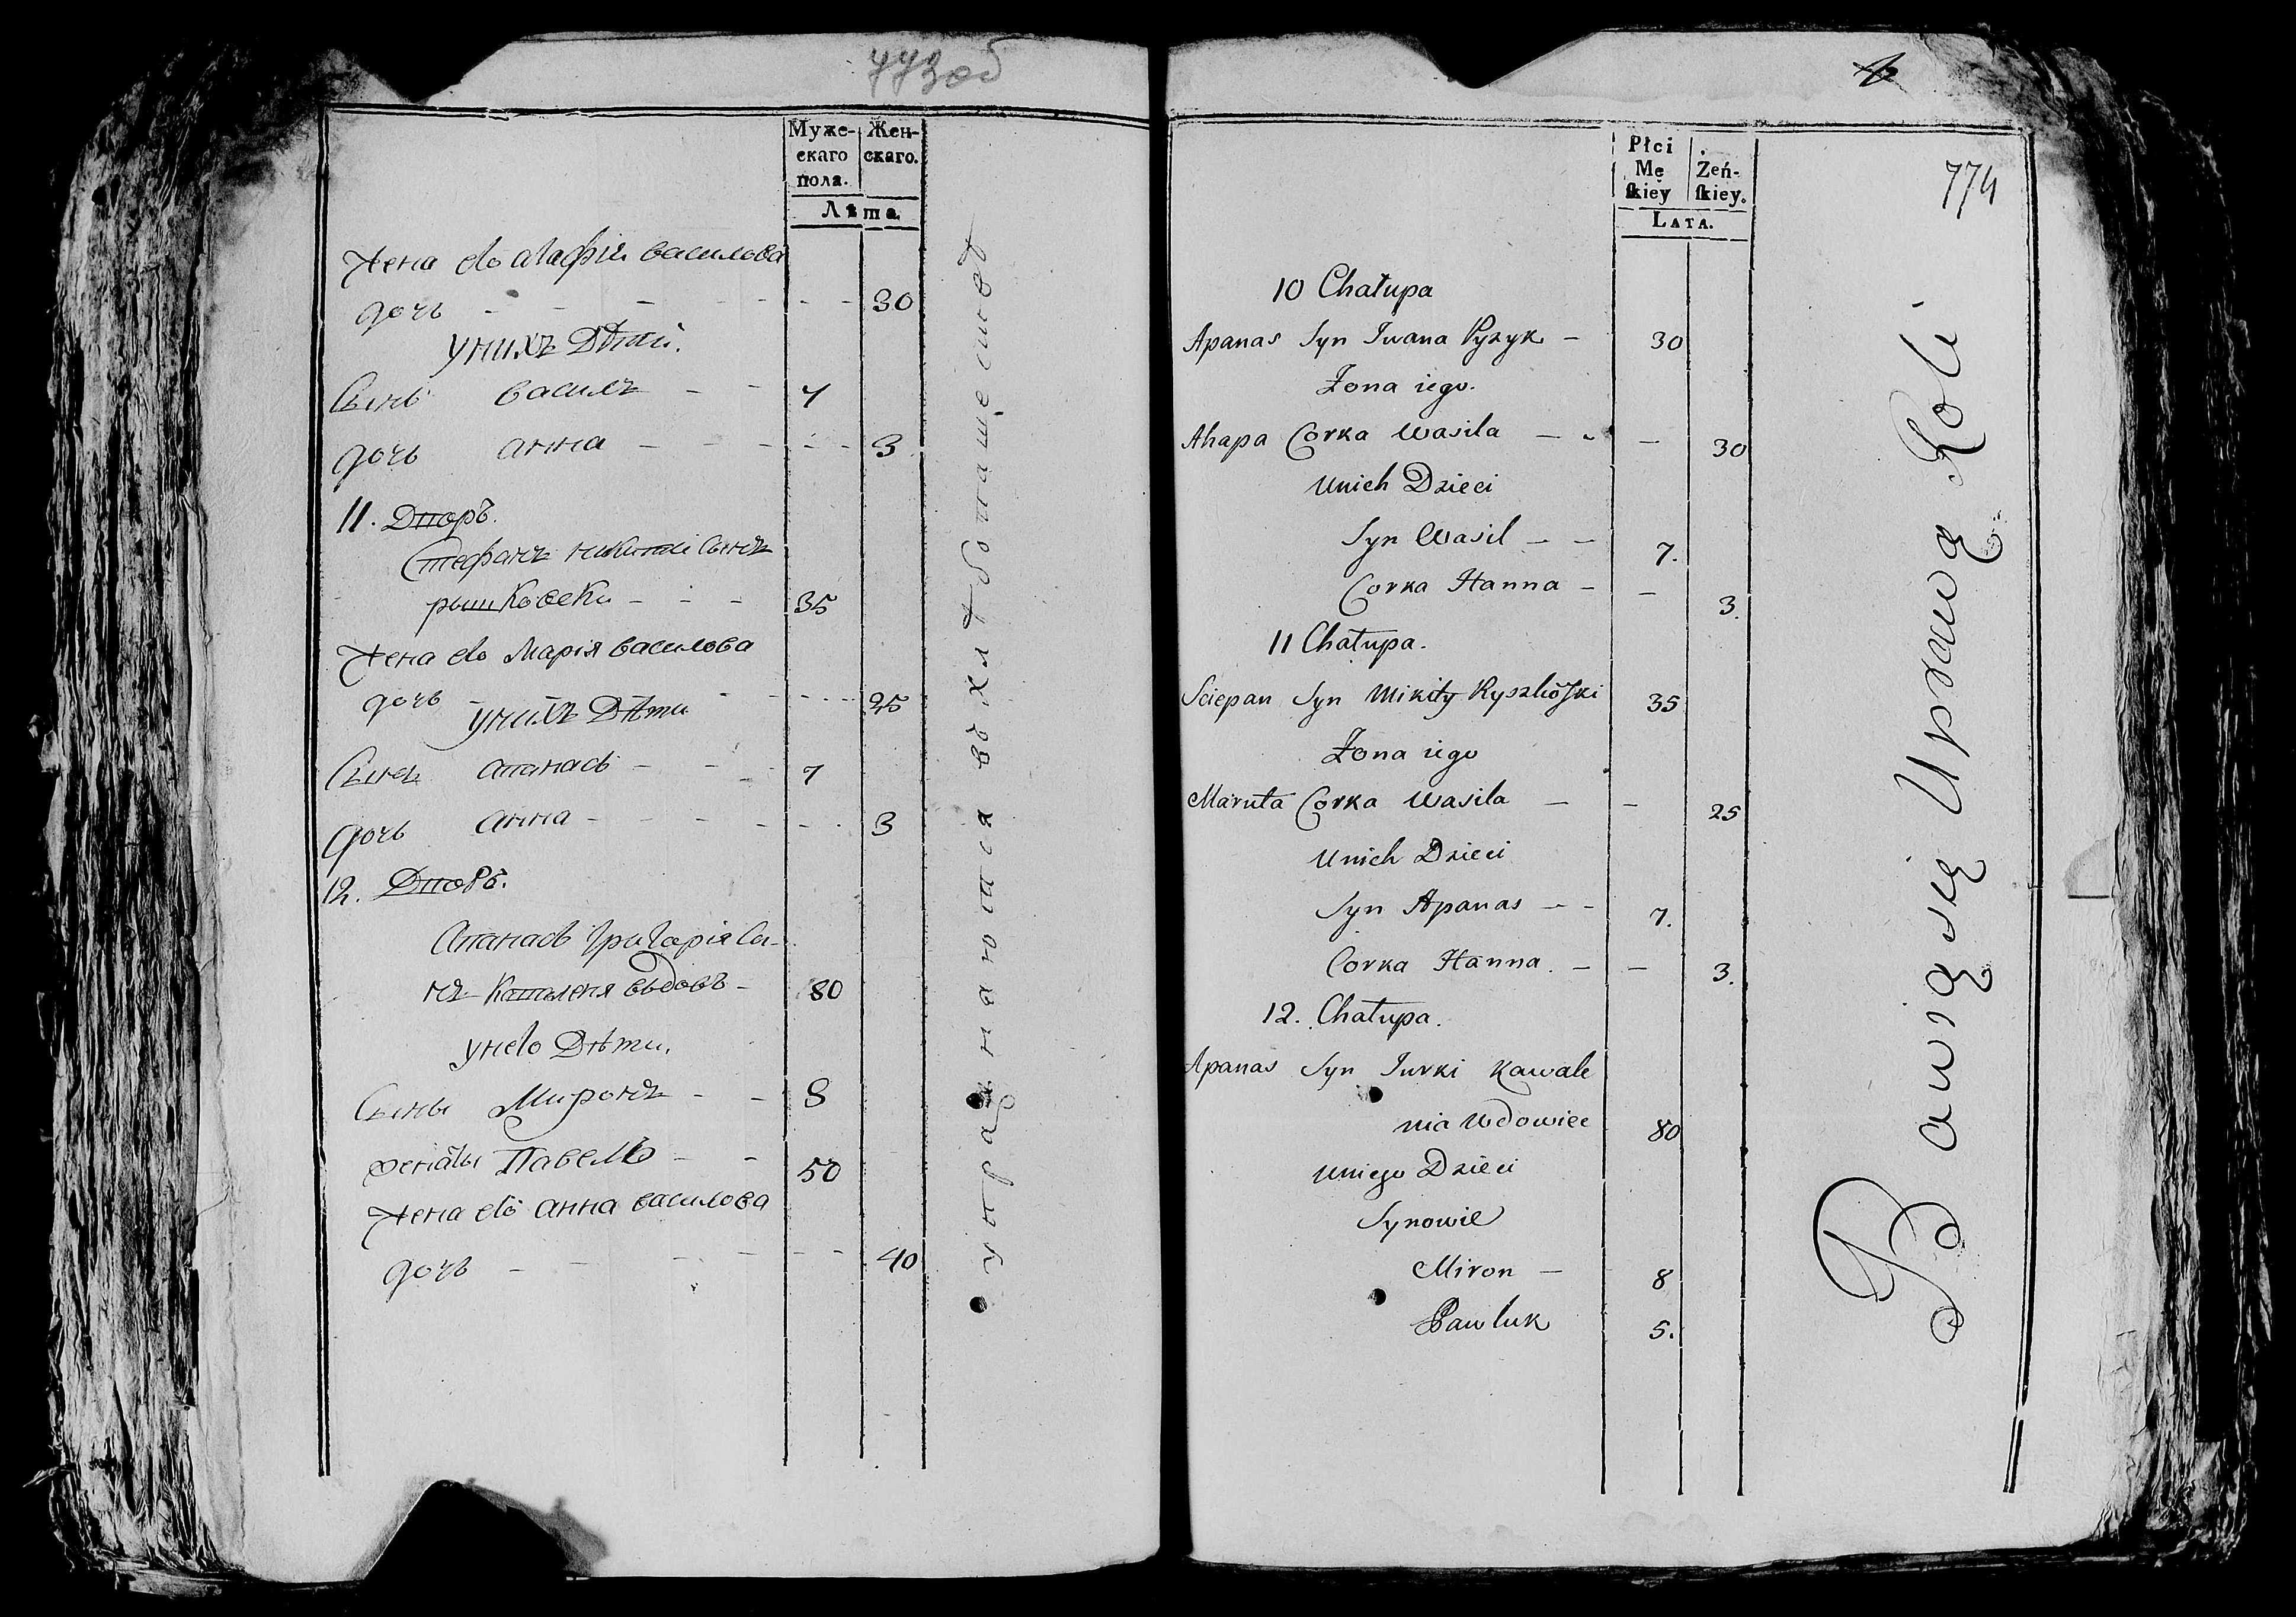 773об
Муже-
скаго
пола.
Жен-
скаго.
Лѣта.
Жена его агафiи василова
дочь - - - - - - 30
унихъ Дѣти.
Сынъ василъ - - 7
дочь анна - - - - - 3
11. Дворъ.
Стефанъ никити сынъ
рышковски - - - 35
Жена его Марiя василова
дочь - - - - - 25
унихъ Дѣти
Сынъ апанасъ - - - 7
дочь анна - - - - - 3
12. Дворъ.
Апанасъ григорiя сы-
нъ Каваленя вдовъ - 80
унего Дѣти.
Сыны Миронъ - - 8
женаты Павелъ - - 50
Жена его анна василова
дочь - - - - - - 40
упражняются въ хлѣбопашествѣ
774
Płci
Mę
skiey
Żeń-
skiey.
Lata.
10 Chałupa
Apanas Syn Iwana Pyzyk - 30
Żona iego.
Ahapa Corka Wasila - - - 30
Unich Dzieci
Syn Wasil - - 7.
Corka Hanna - - 3.
11 Chałupa.
Sciepan Syn Mikity Ryszkoski 35
Żona iego
Maruta Corka Wasila - - 25
Unich Dzieci
Syn Apanas - - 7.
Corka Hanna. - - 3.
12. Chałupa.
Apanas Syn Jurki Kawale
nia Wdowiec 80
Uniego Dzieci
Synowie
Miron - 8
Pawluk 5.
Bawią się Uprawą Roli